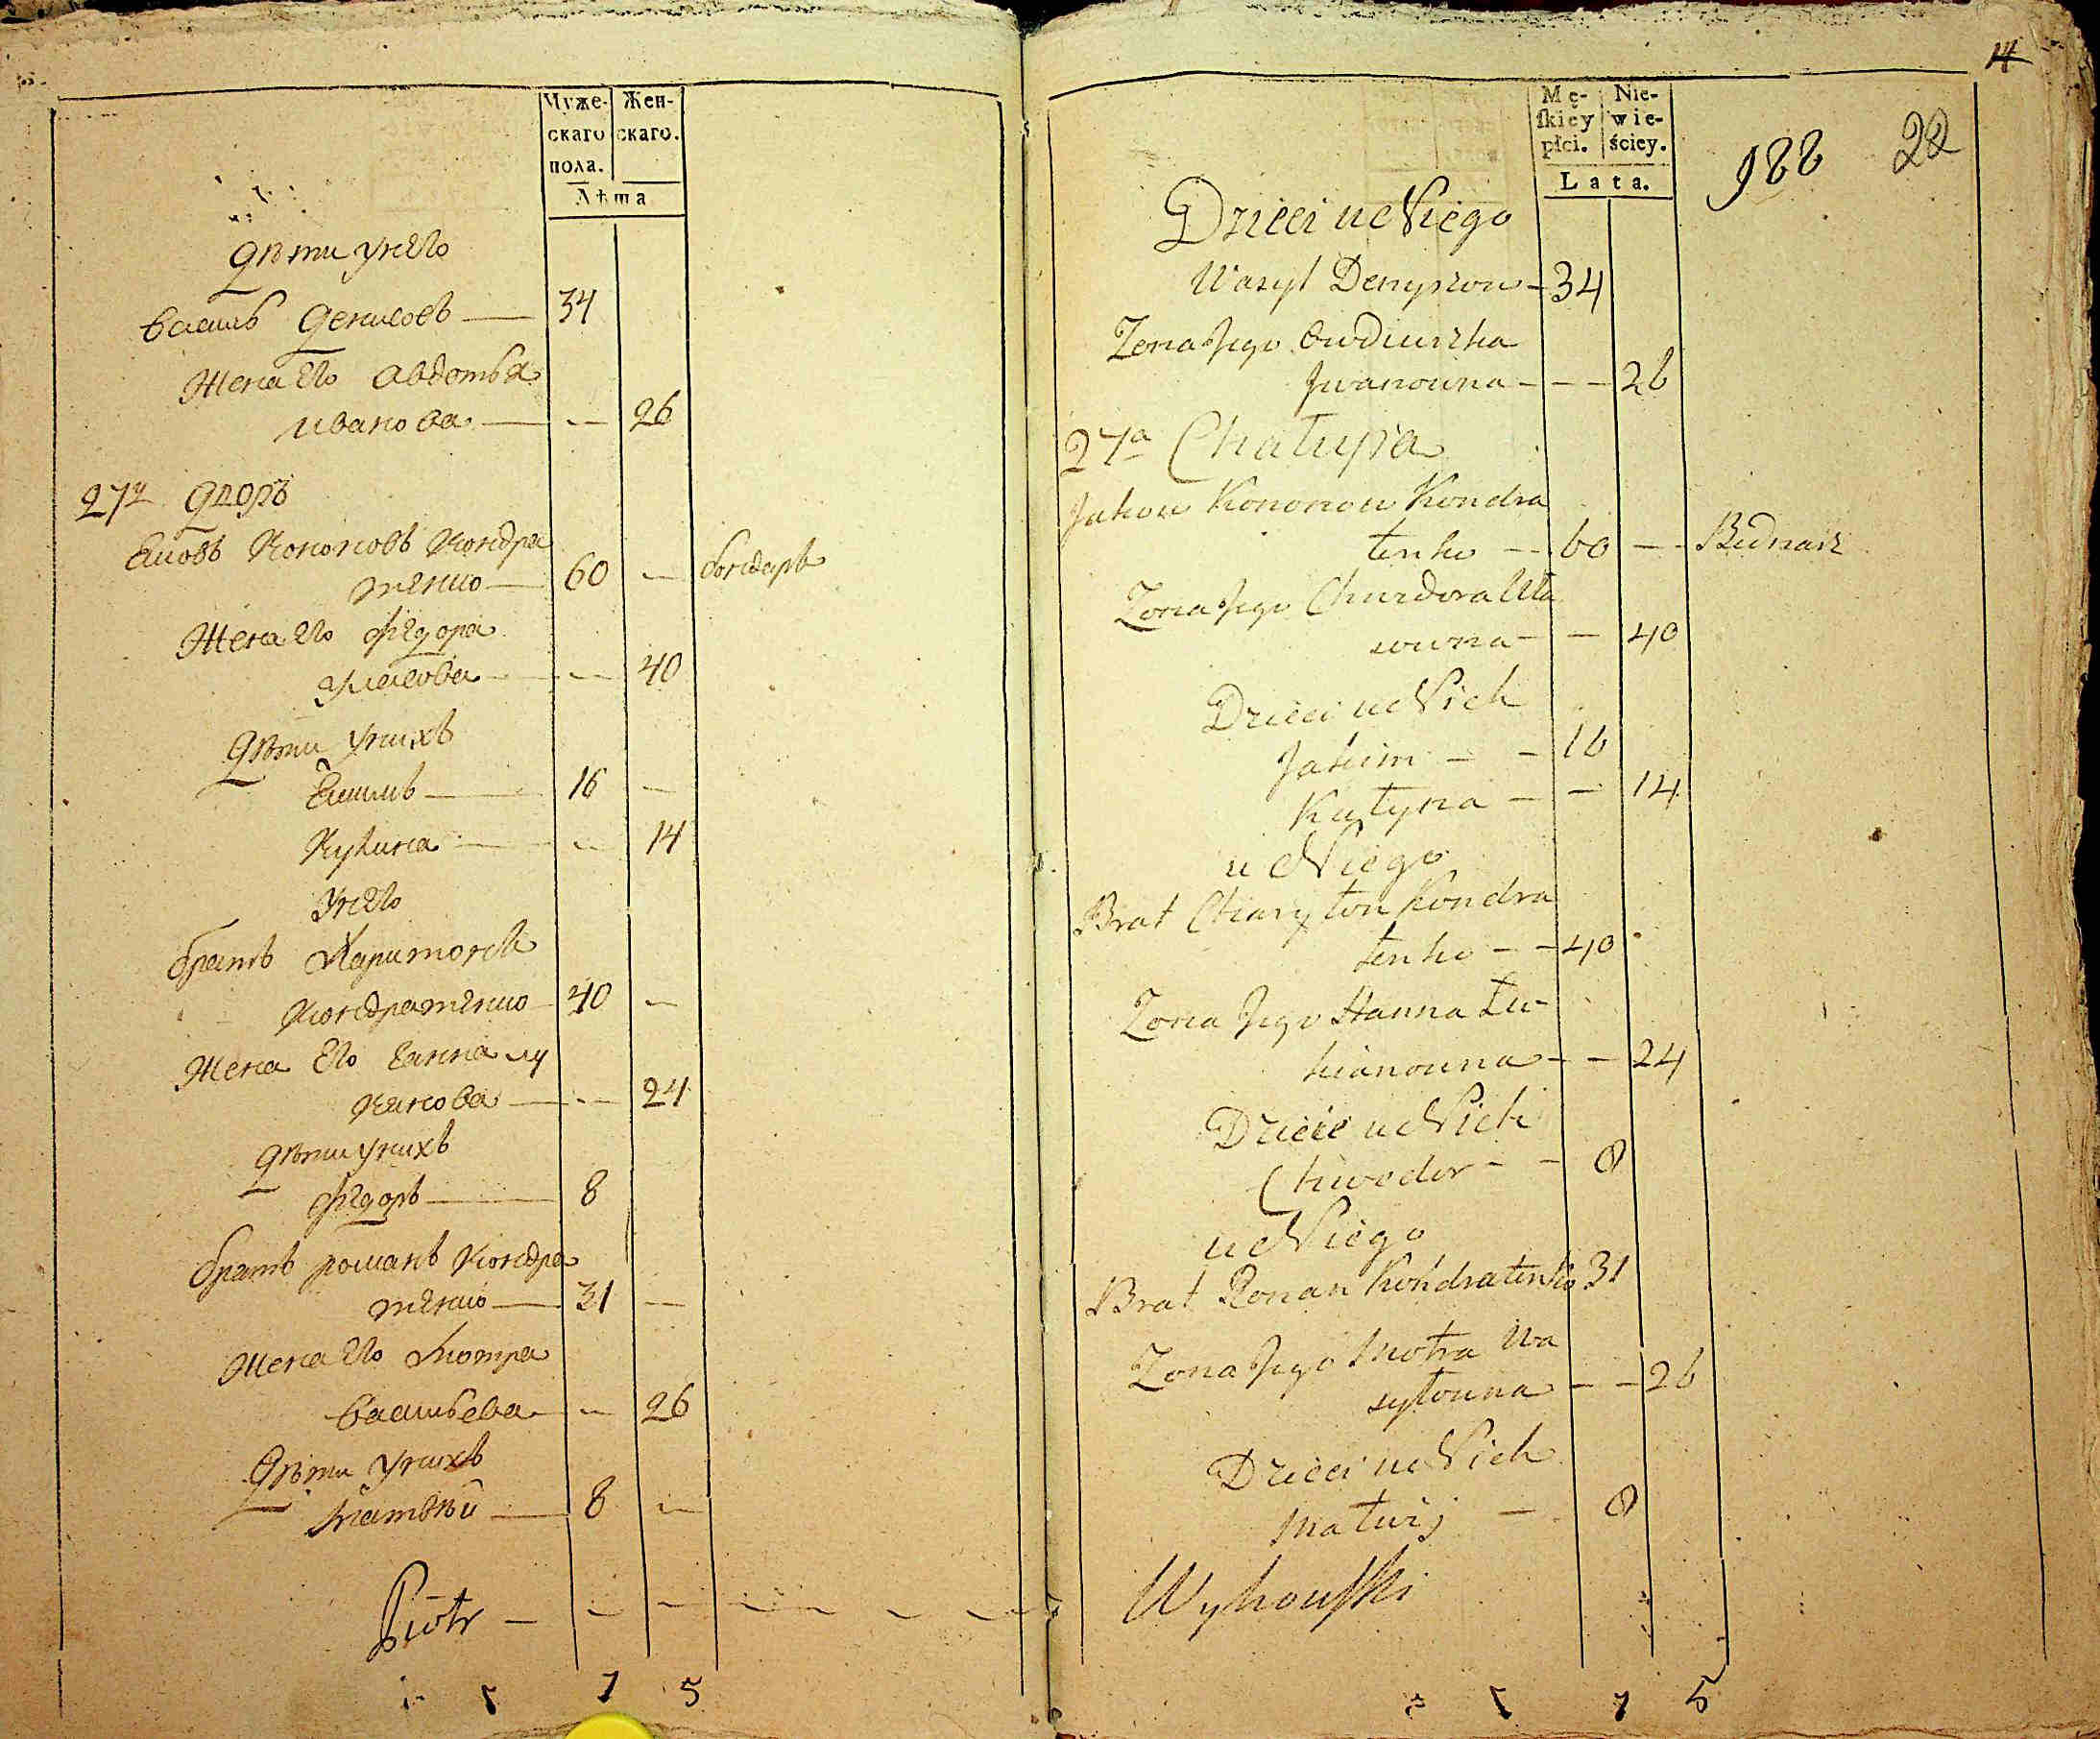 Муже-
скаго
пола.
Жен-
скаго.
Лѣта
Дѣти унего
Василь Денисовъ — 34
Жена его Авдотья
иванова — -- 26
27й Дворъ
Яковъ Кононовъ Кондра
тенко — 60 — бондарь
Жена его Федора
Уласова — -- 40
Дѣти унихъ
Екимъ — 16 —
Кулина — -- 14
Унего
братъ Харитонъ
Кондратенко — 40 —
Жена Его Ганна лу
кянова — -- 24
Дѣти унихъ
Федоръ — 8
братъ романъ Кондра
тенко — 31 —
Жена его Мотра
Васильева — -- 26
Дѣти унихъ
Матвѣй — 8 —
Piotr — — — — — — —
1 7 7 5
14
Mę-
ſkiey
płci.
Nie-
wie-
ściey.
Lata.
188 28
Dzieci u Niego
Wasyl Denyszow - 34
Zona Jego Owdiuszka
Jwanowna - - - 26
27a Chałupa
Jakow Kononow Kondra
tenko - - 60 - - Bednarz
Zona Jego Chwedora Uła
sowna - - 40
Dzieci u Nich
Jakim - - 16
Kułyna - - 14
u Niego
Brat Charyton Kondra
tenko - - 40
Zona Jego Hanna Łu-
kianowna - - 24
Dzieci u Nich
Chwedor - - 8
u Niego
Brat Roman Kondratenko 31
Zona Jego Motra Wa
syłowna - - 26
Dzieci u Nich
Matwij - 8
Wyhowſki
1 7 7 5